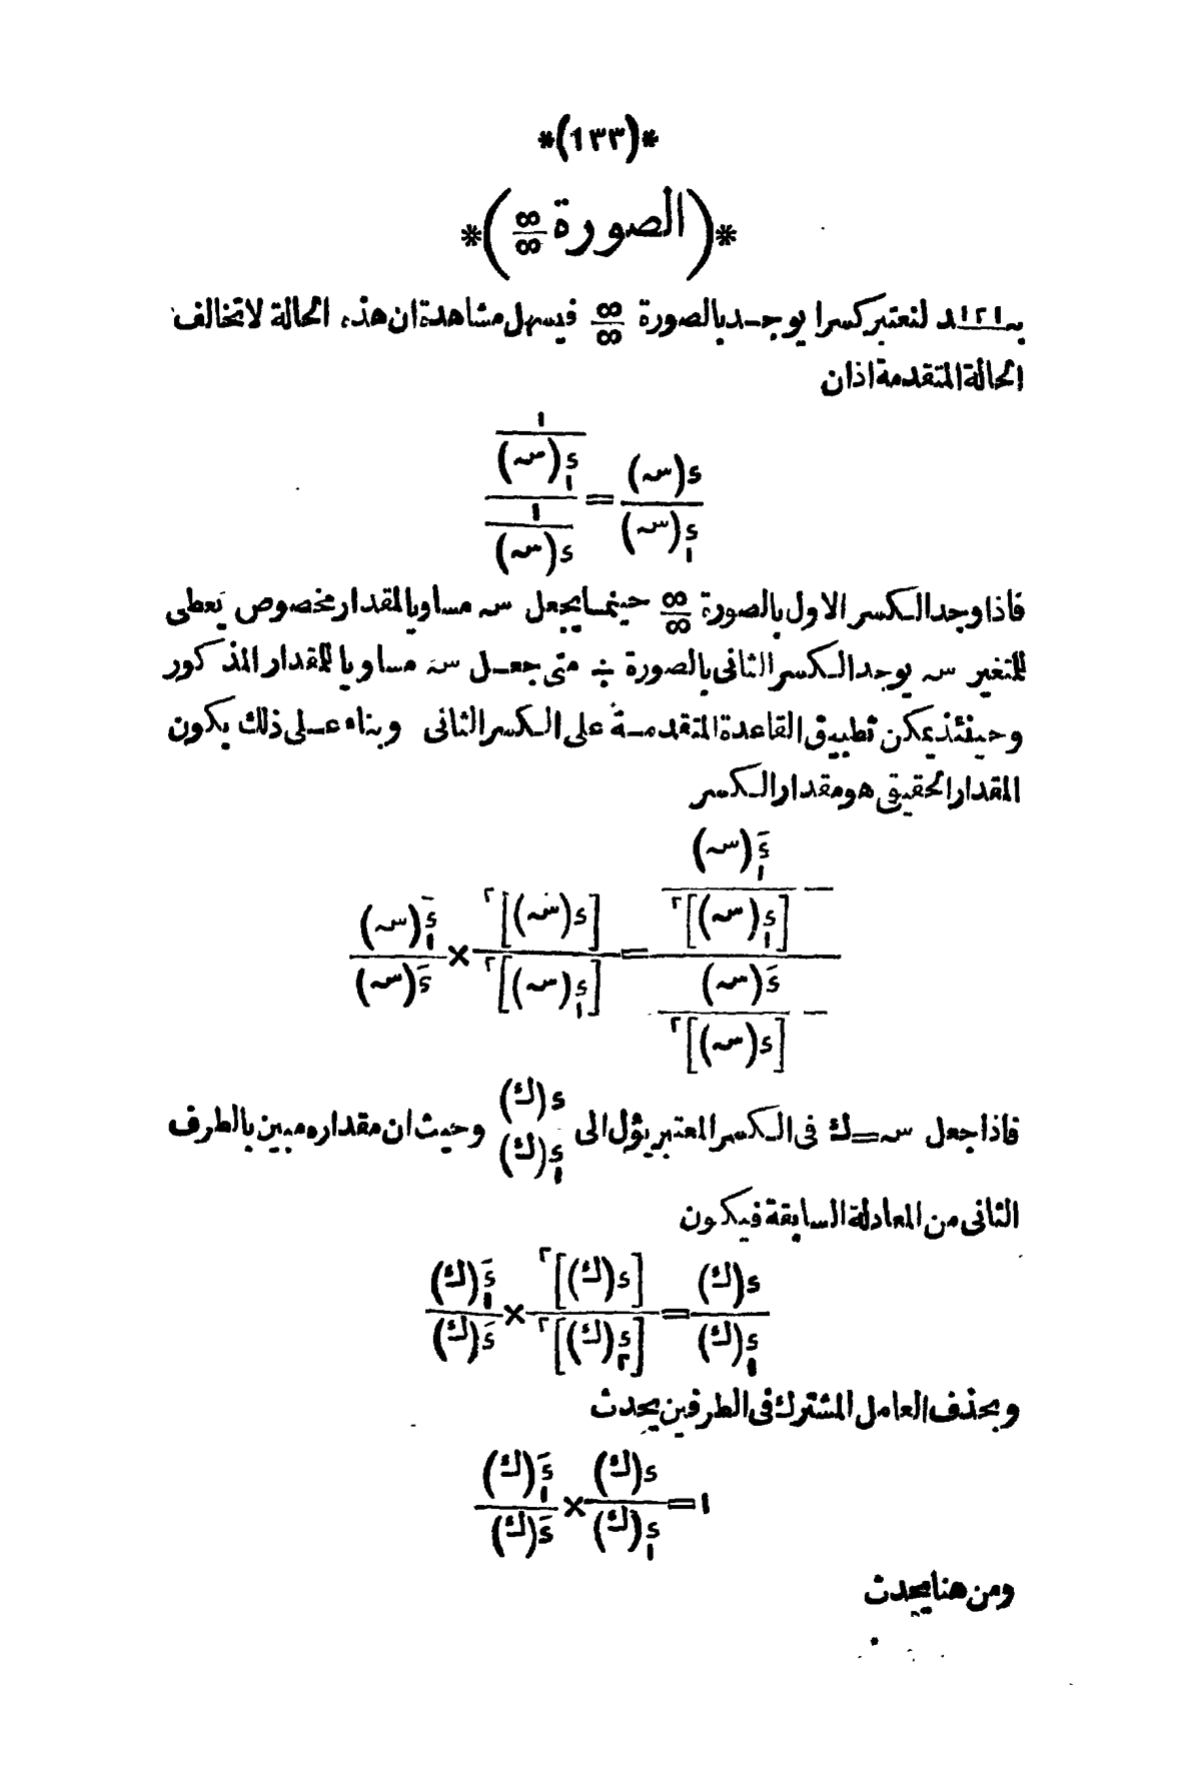 *(١٣٣)*
*(الصورة ∞/∞)*
بند ١٢١ لنعتبر كسرا يوجد بالصورة ∞/∞ فيسهل مشاهدة ان هذه الحالة لا تخالف
الحالة المتقدمة اذ ان
د(س)/د₁(س) = (١/د₁(س))/(١/د(س))
فاذا وجد الكسر الاول بالصورة ∞/∞ حينما يجعل س مساويا لمقدار مخصوص يعطى
للمتغير س يوجد الكسر الثانى بالصورة ÷ متى جعل س مساويا للمقدار المذكور
وحينئذ يمكن تطبيق القاعدة المتقدمة على الكسر الثانى وبناء على ذلك يكون
المقدار الحقيقى هو مقدار الكسر
(− دَ₁(س)/[د₁(س)]٢)/(− دَ(س)/[د(س)]٢) = [د(س)]٢/[د₁(س)]٢ × دَ₁(س)/دَ(س)
فاذا جعل س=ك فى الكسر المعتبر يؤل الى د(ك)/د₁(ك) وحيث ان مقداره مبين بالطرف
الثانى من المعادلة السابقة فيكون
د(ك)/د₁(ك) = [د(ك)]٢/[د₂(ك)]٢ × دَ₁(ك)/دَ(ك)
وبحذف العامل المشترك فى الطرفين يحدث
١ = د(ك)/د₁(ك) × دَ₁(ك)/دَ(ك)
ومن هنا يحدث